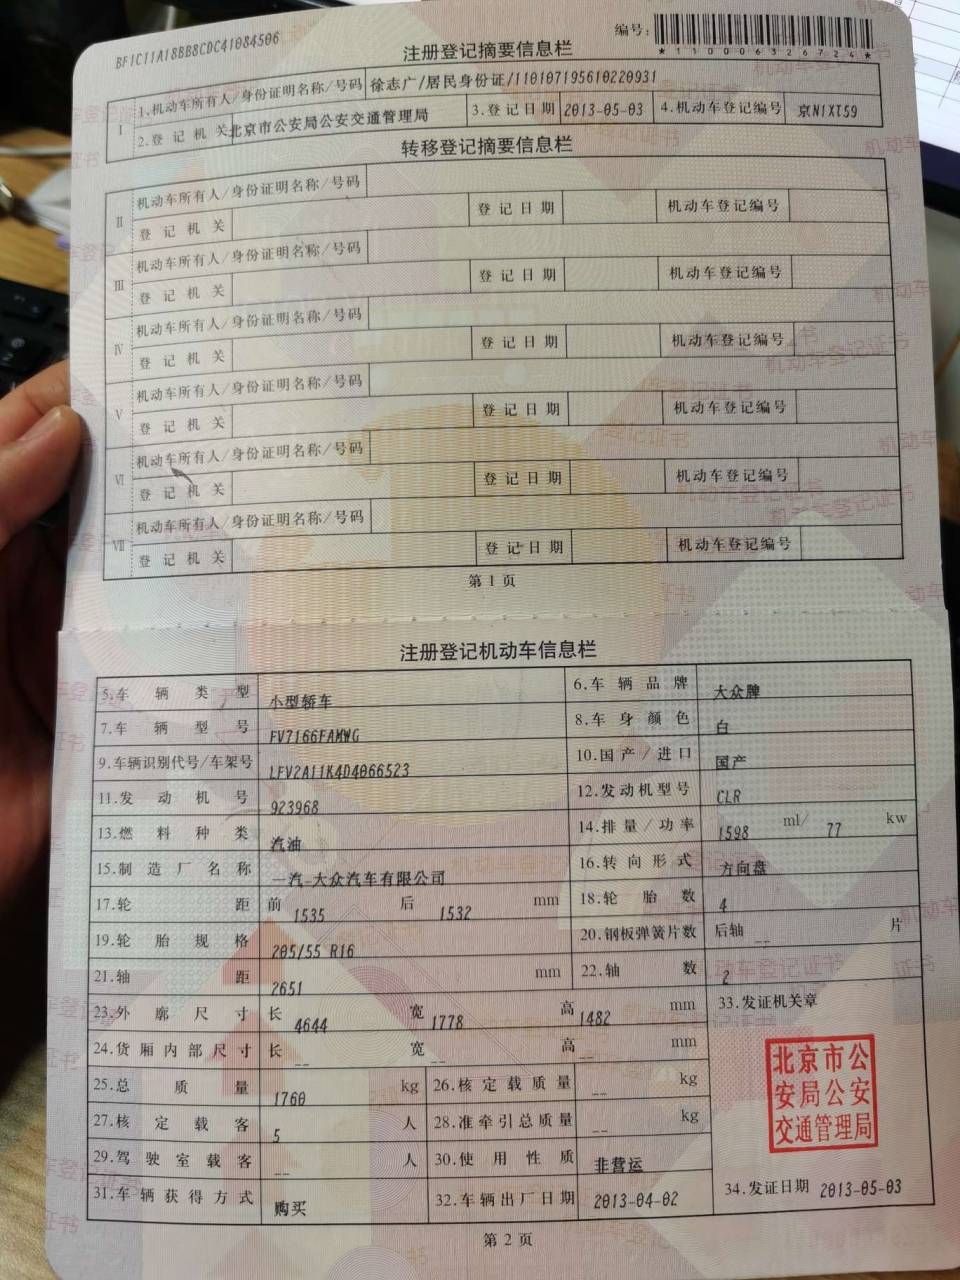 BF1C11A18BB8CDC41084506
编号:
*110006326724*
注册登记摘要信息栏
I 1.机动车所有人/身份证明名称/号码 徐志广/居民身份证/110107195610220931
2.登记机关 北京市公安局公安交通管理局 3.登记日期 2013-05-03 4.机动车登记编号 京N1XT59
转移登记摘要信息栏
II 机动车所有人/身份证明名称/号码
登记机关 登记日期 机动车登记编号
III 机动车所有人/身份证明名称/号码
登记机关 登记日期 机动车登记编号
IV 机动车所有人/身份证明名称/号码
登记机关 登记日期 机动车登记编号
V 机动车所有人/身份证明名称/号码
登记机关 登记日期 机动车登记编号
VI 机动车所有人/身份证明名称/号码
登记机关 登记日期 机动车登记编号
VII 机动车所有人/身份证明名称/号码
登记机关 登记日期 机动车登记编号
第1页
注册登记机动车信息栏
5.车辆类型 小型轿车 6.车辆品牌 大众牌
7.车辆型号 FV7166FAMWG 8.车身颜色 白
9.车辆识别代号/车架号 LFV2A11K4D4066523 10.国产/进口 国产
11.发动机号 923968 12.发动机型号 CLR
13.燃料种类 汽油 14.排量/功率 1598 ml/ 77 kw
15.制造厂名称 一汽-大众汽车有限公司 16.转向形式 方向盘
17.轮距 前 1535 后 1532 mm 18.轮胎数 4
19.轮胎规格 205/55 R16 20.钢板弹簧片数 后轴 -- 片
21.轴距 2651 mm 22.轴数 2
23.外廓尺寸 长 4644 宽 1778 高 1482 mm 33.发证机关章
24.货厢内部尺寸 长 -- 宽 -- 高 -- mm
25.总质量 1760 kg 26.核定载质量 -- kg
27.核定载客 5 人 28.准牵引总质量 -- kg
29.驾驶室载客 -- 人 30.使用性质 非营运
31.车辆获得方式 购买 32.车辆出厂日期 2013-04-02 34.发证日期 2013-05-03
北京市公
安局公安
交通管理局
第2页